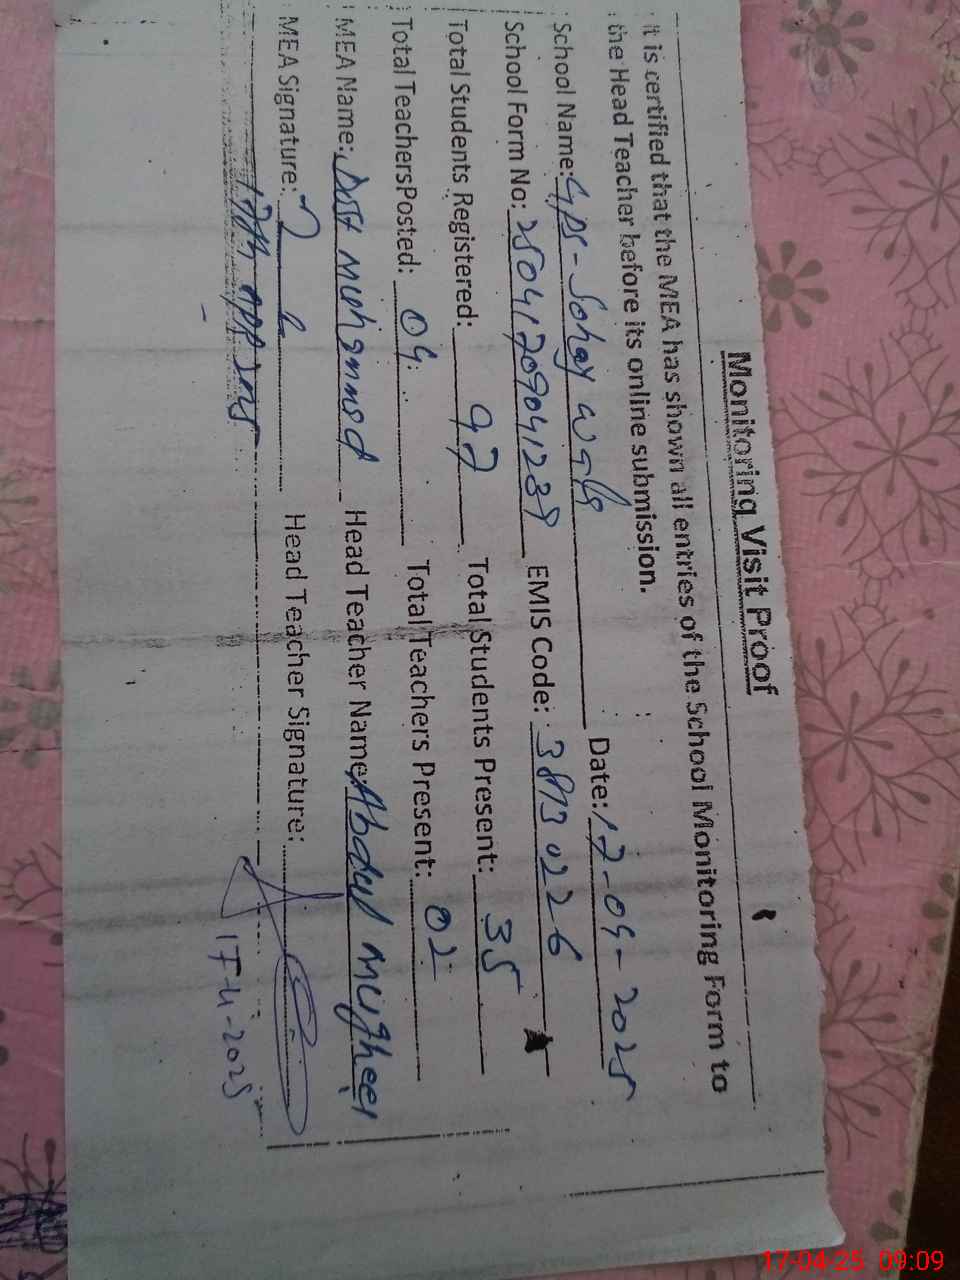 Monitoring Visit Proof
It is certified that the MEA has shown all entries of the School Monitoring Form to
the Head Teacher before its online submission.
School Name: GPS-Sohay Wali Date: 17-04-2025
School Form No: 25041709041239 EMIS Code: 38130226
Total Students Registered: 97 Total Students Present: 35
Total TeachersPosted: 04 Total Teachers Present: 02
MEA Name: Dost Muhammad Head Teacher Name: Abdul Mugheer
MEA Signature: Head Teacher Signature:
17th apr 2025
17-4-2025
17-04-25 09:09